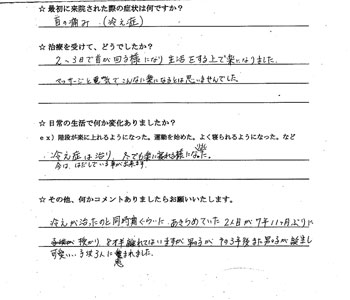 ☆ 最初に来院された際の症状は何ですか?
首の痛み (冷え症)
☆ 治療を受けて、どうでしたか?
2~3日で首が回る様になり生活をする上で楽になりました。
マッサージと電気でこんなに楽になるとは思いませんでした。
☆ 日常の生活で何か変化ありましたか?
ex) 階段が楽に上れるようになった。運動を始めた。よく寝られるようになった。など
冷え症は治り、
今は、はだしでいる事が出来ます。
☆ その他、何かコメントありましたらお願いいたします。
冷えが治ったのと同時期くらいに、あきらめていた2人目が7年11ヶ月ぶりに
子供が授かり 8才半離れてはいますが男の子が 後また男の子が誕生し
可愛い子供3人に恵まれました。